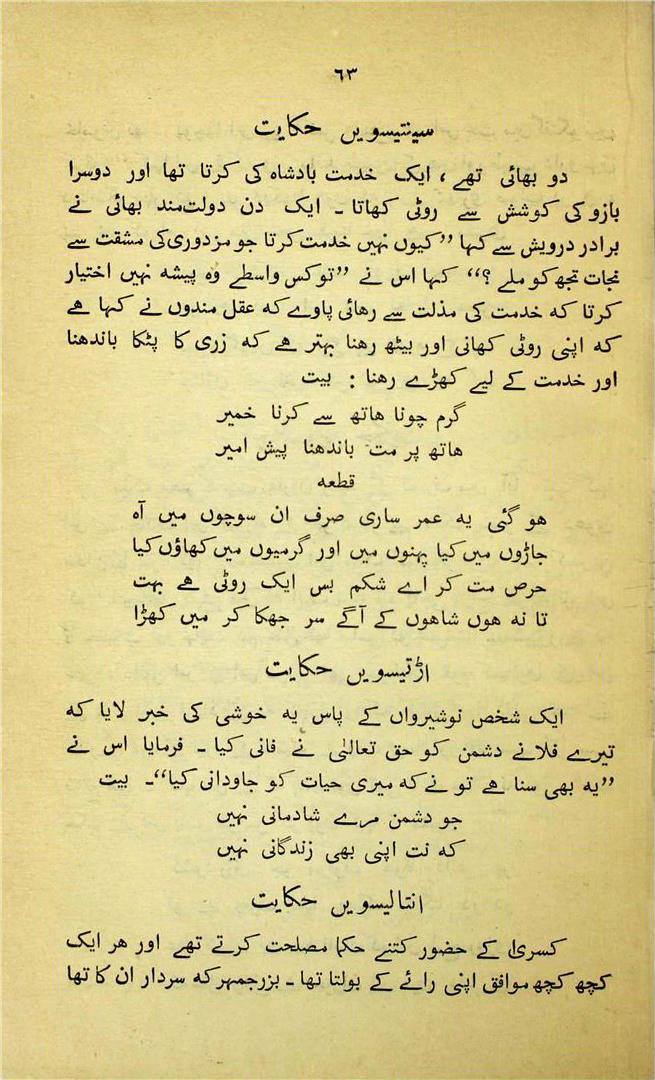 ٦٣
سینتیسویں حکایت
دو بھائی تھے ، ایک خدمت بادشاہ کی کرتا تھا اور دوسرا
بازو کی کوشش سے روٹی کھاتا ۔ ایک دن دولت‌مند بھائی نے
برادر درویش سے کہا ”کیوں نہیں خدمت کرتا جو مزدوری کی مشقت سے
نجات تجھ کو ملے ؟“ کہا اس نے ”تو کس واسطے وہ پیشہ نہیں اختیار
کرتا کہ خدمت کی مذلت سے رھائی پاوے کہ عقل مندوں نے کہا ھے
کہ اپنی روٹی کھانی اور بیٹھ رھنا بہتر ھے کہ زری کا پٹکا باندھنا
اور خدمت کے لیے کھڑے رھنا : بیت
گرم چونا ھاتھ سے کرنا خمیر
ھاتھ پر مت باندھنا پیش امیر
قطعہ
ھو گئی یہ عمر ساری صرف ان سوچوں میں آہ
جاڑوں میں کیا پہنوں میں اور گرمیوں میں کھاؤں کیا
حرص مت کر اے شکم بس ایک روٹی ھے بہت
تا نہ ھوں شاھوں کے آگے سر جھکا کر میں کھڑا
اڑتیسویں حکایت
ایک شخص نوشیرواں کے پاس یہ خوشی کی خبر لایا کہ
تیرے فلانے دشمن کو حق تعالیٰ نے فانی کیا ۔ فرمایا اس نے
”یہ بھی سنا ھے تو نے کہ میری حیات کو جاودانی کیا“۔ بیت
جو دشمن مرے شادمانی نہیں
کہ نت اپنی بھی زندگانی نہیں
انتالیسویں حکایت
کسریٰ کے حضور کتنے حکما مصلحت کرتے تھے اور ھر ایک
کچھ کچھ موافق اپنی رائے کے بولتا تھا ۔ بزرجمہر کہ سردار ان کا تھا